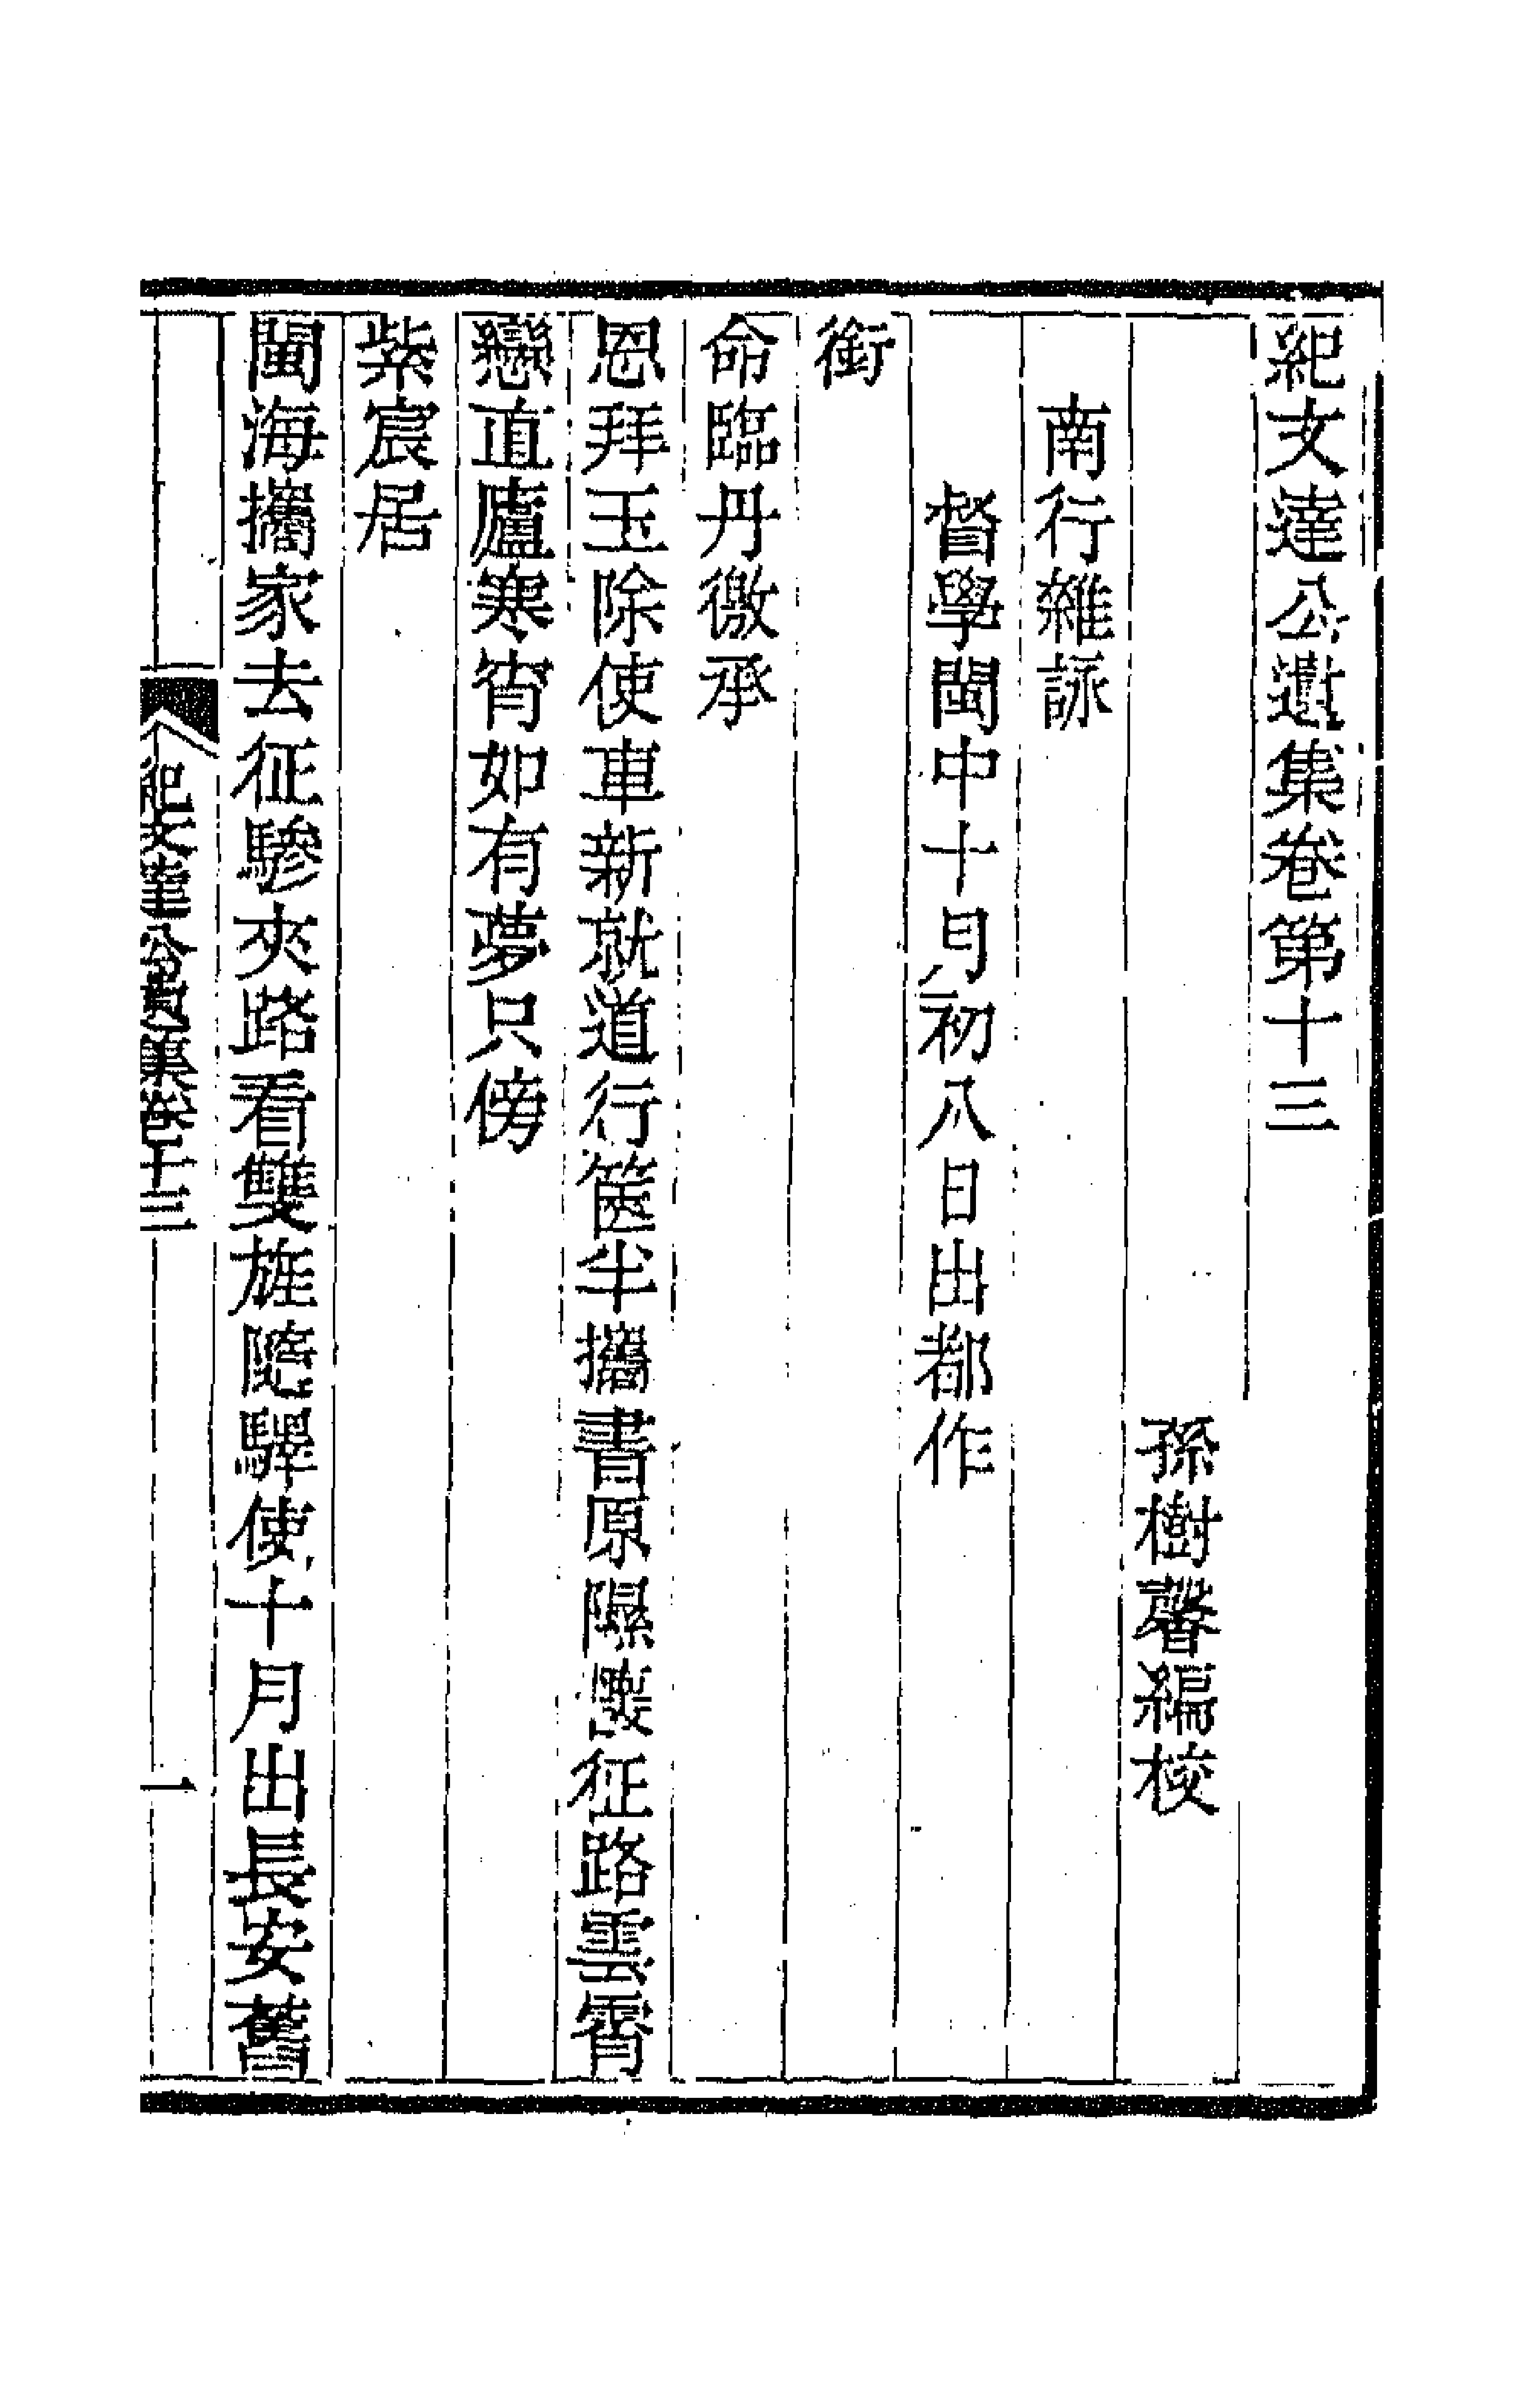 紀文達公遺集卷第十三
孫樹馨編校
南行雜詠
督學閩中十月初八日出都作
銜
命臨丹徼承
恩拜玉除使車新就道行篋半攜書原隰淒征路雲霄
戀直廬寒宵如有夢只傍
紫宸居
閩海攜家去征驂夾路看雙旌隨驛使十月出長安舊
紀文達公遺集卷十三
一